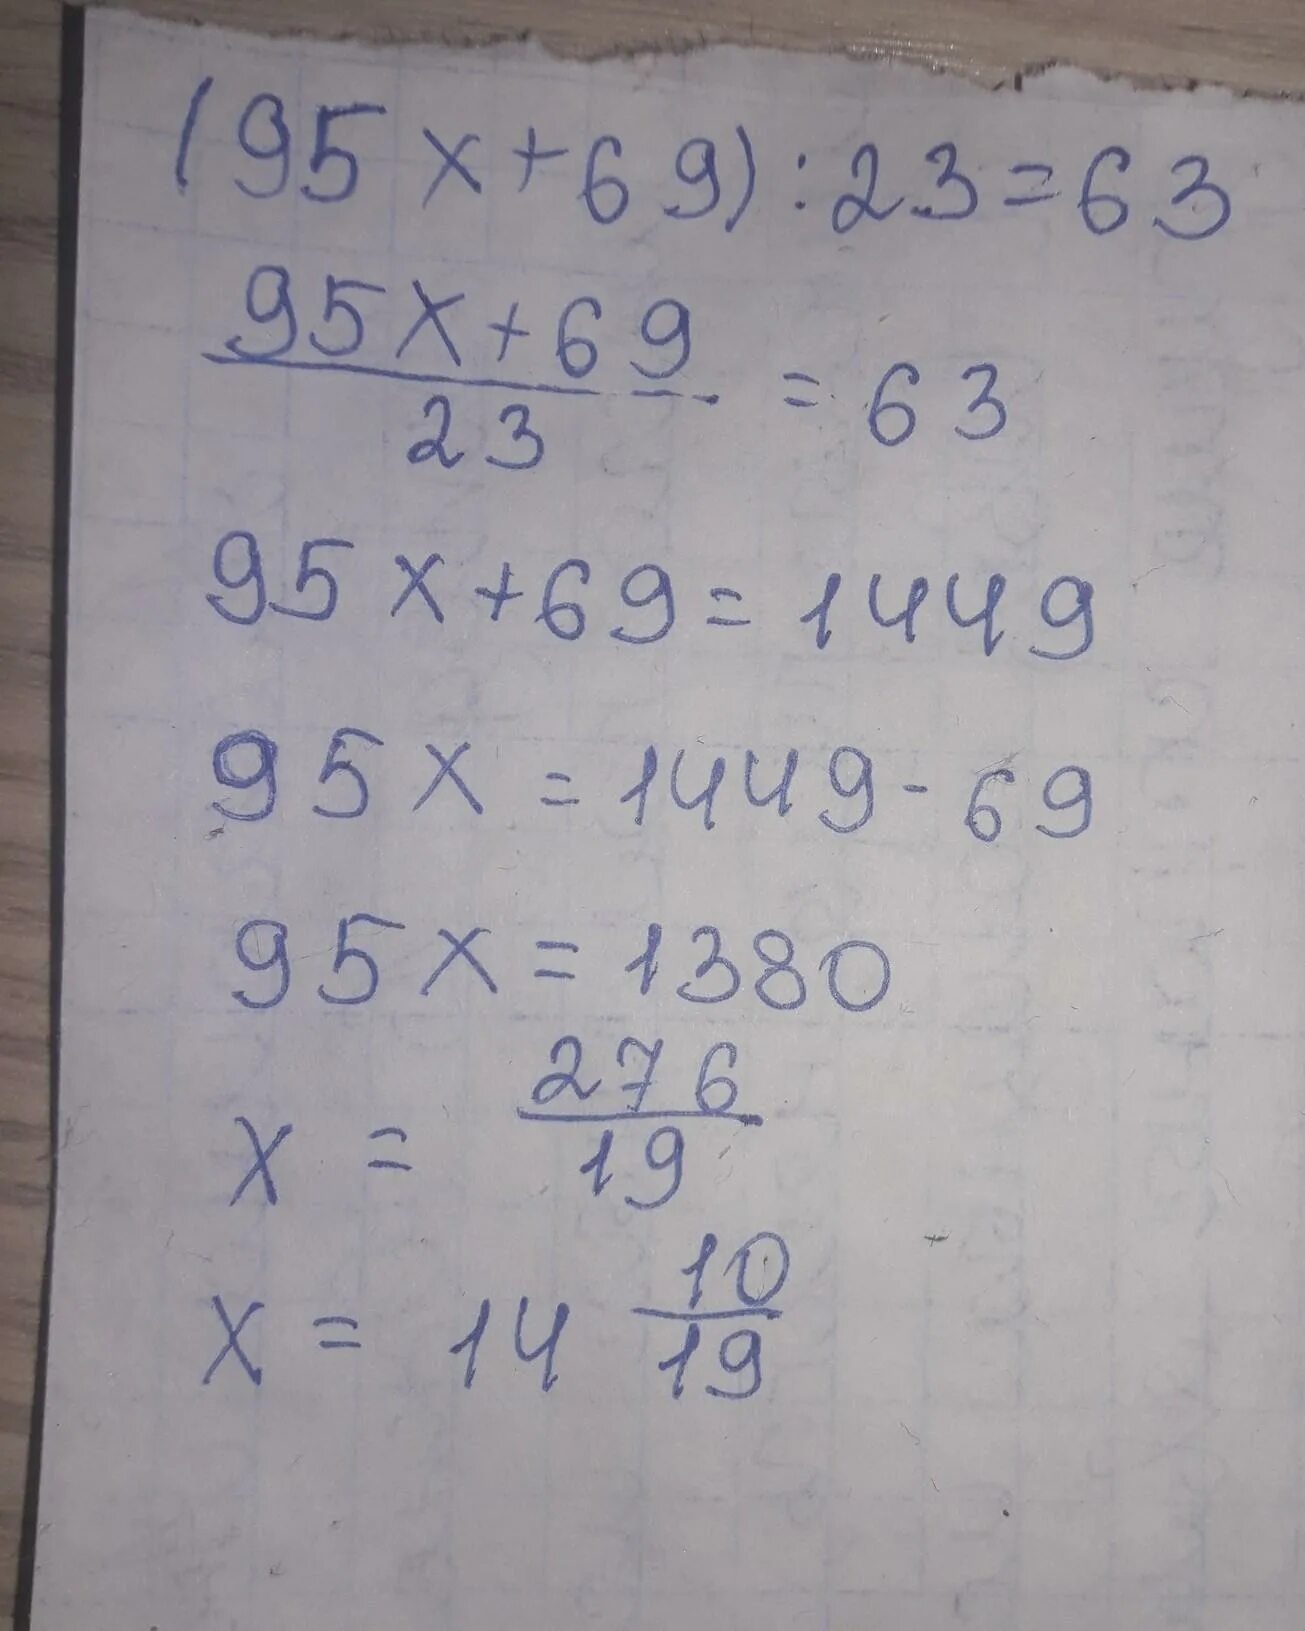 (95x+69):23=63
95x+69
23
=63
95x+69=1449
95x=1449-69
95x=1380
x = 276/19
x = 14 10/19